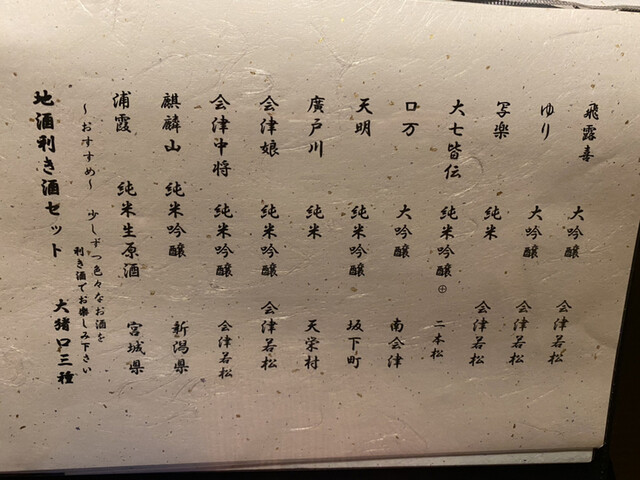 飛露喜 大吟醸 会津若松
ゆり 大吟醸 会津若松
写楽 純米 会津若松
大七皆伝 純米吟醸⊕ 二本松
口万 大吟醸 南会津
天明 純米吟醸 坂下町
廣戸川 純米 天栄村
会津娘 純米吟醸 会津若松
会津中将 純米吟醸 会津若松
麒麟山 純米吟醸 新潟県
浦霞 純米生原酒 宮城県
~おすすめ~ 少しずつ色々なお酒を
利き酒でお楽しみ下さい
地酒利き酒セット 大猪口三種